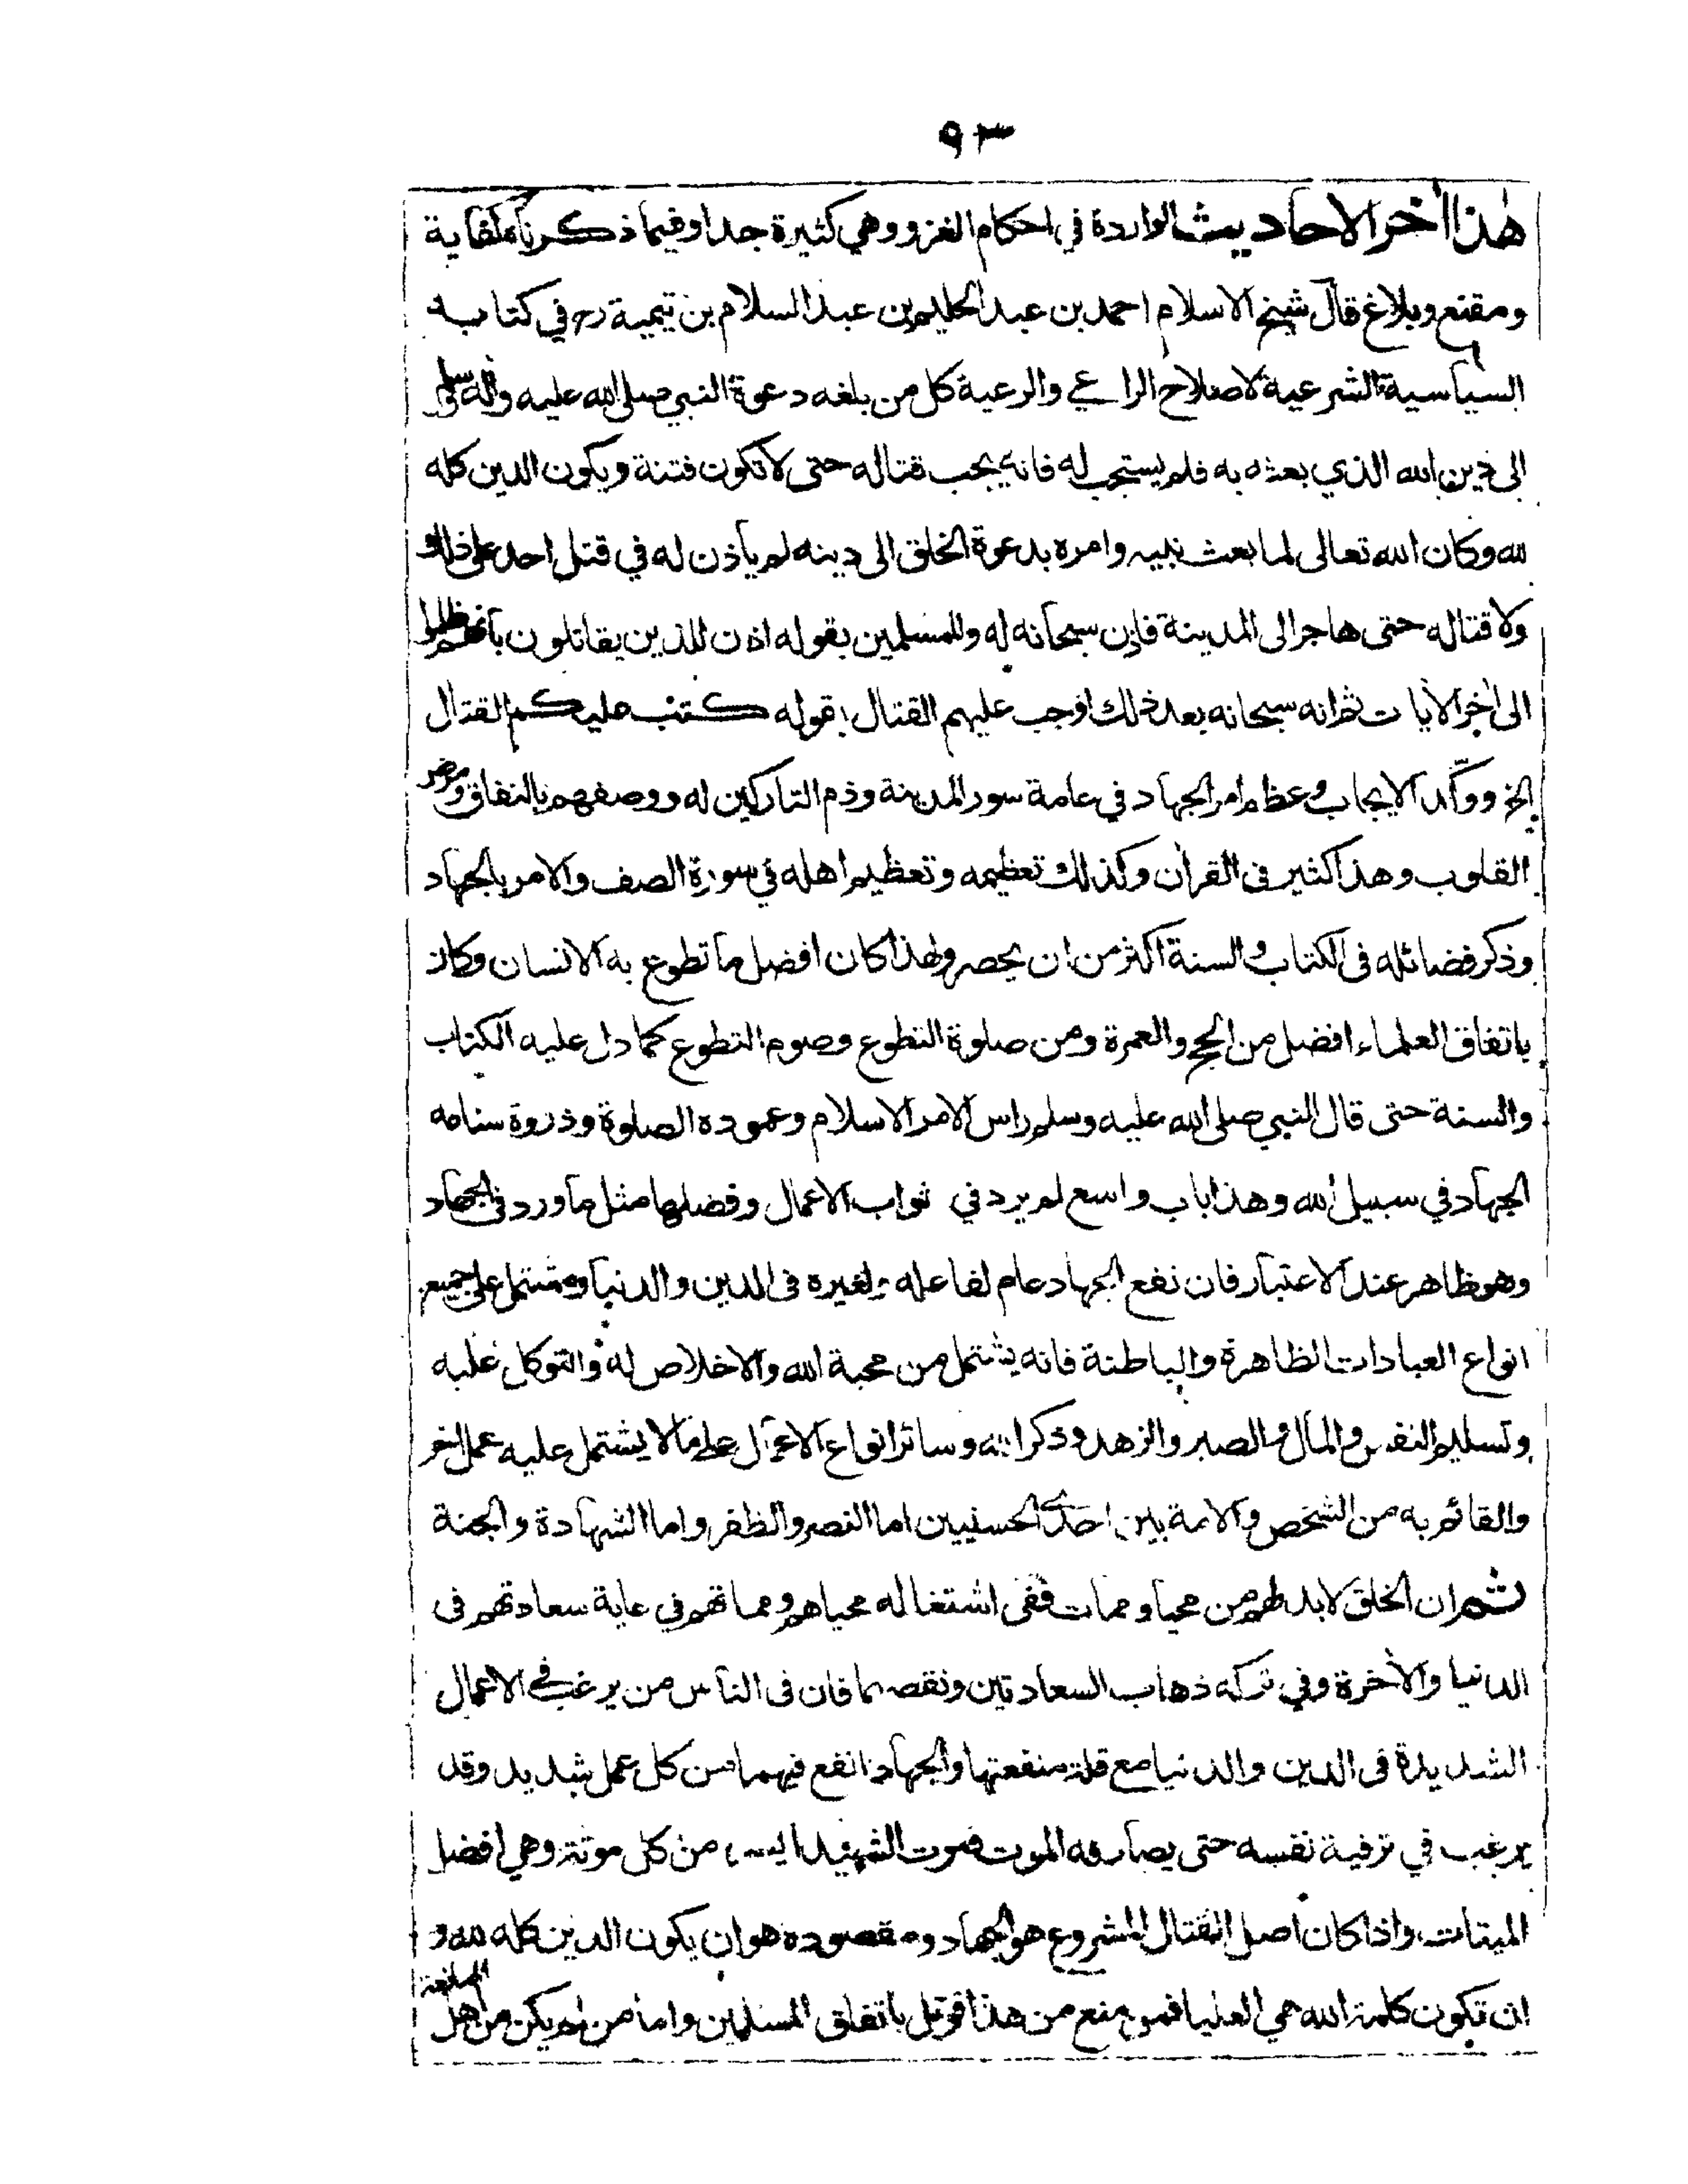 ٩٣
هذا اخر الاحاديث الواردة في احكام الغزو وهي كثيرة جدا وفيما ذكرناه كفاية
ومقنع وبلاغ قال شيخ الاسلام احمد بن عبد الحليم بن عبد السلام بن تيمية رح في كتابه
السياسية الشرعية لاصلاح الراعي والرعية كل من بلغه دعوة النبي صلى الله عليه واله وسلم
الى دين الله الذي بعثه به فلم يستجب له فانه يجب قتاله حتى لا تكون فتنة ويكون الدين كله
لله وكان الله تعالى لما بعث نبيه وامره بدعوة الخلق الى دينه لم يأذن له في قتل احد على ذلك
ولا قتاله حتى هاجر الى المدينة فاذن سبحانه له وللمسلمين بقوله اذن للذين يقاتلون بانهم ظلموا
الى اٰخر الاٰيات ثم انه سبحانه بعد ذلك اوجب عليهم القتال بقوله كتب عليكم القتال
الخ ووكّد الايجاب وعظم امر الجهاد في عامة سور المدينة وذم التاركين له ووصفهم بالنفاق ومرض
القلوب وهذا كثير في القراٰن وكذلك تعظيمه وتعظيم اهله في سورة الصف والامر بالجهاد
وذكر فضائله في الكتاب والسنة اكثر من ان يحصر ولهذا كان افضل ما تطوع به الانسان وكان
باتفاق العلماء افضل من الحج والعمرة ومن صلوة التطوع وصوم التطوع كما دل عليه الكتاب
والسنة حتى قال النبي صلى الله عليه وسلم راس الامر الاسلام وعموده الصلوة وذروة سنامه
الجهاد في سبيل الله وهذا باب واسع لم يرد في ثواب الاعمال وفضلها مثل ما ورد في الجهاد
وهو ظاهر عند الاعتبار فان نفع الجهاد عام لفاعله ولغيره في الدين والدنيا ومشتمل على جميع
انواع العبادات الظاهرة والباطنة فانه يشتمل من محبة الله والاخلاص له والتوكل عليه
وتسليم النفس والمال والصبر والزهد وذكر الله وسائر انواع الاعمال على ما لا يشتمل عليه عمل اٰخر
والقائم به من الشخص والامة بين احدى الحسنيين اما النصر والظفر واما الشهادة والجنة
ثم ان الخلق لا بد لهم من محيا وممات ففي اشتغاله محياهم ومماتهم في غاية سعادتهم في
الدنيا والاٰخرة وفي تركه ذهاب السعادتين ونقصهما فان في الناس من يرغب في الاعمال
الشديدة في الدين والدنيا مع قلة منفعتها والجهاد انفع فيهما من كل عمل شديد وقد
يرغب في ترفية نفسه حتى يصادفه الموت فموت الشهيد ايسر من كل موتة وهي افضل
الميتات واذا كان اصل القتال المشروع هو الجهاد ومقصوده هو ان يكون الدين كله لله و
ان تكون كلمة الله هي العليا فمن منع من هذا قوتل باتفاق المسلمين واما من لم يكن من اهل الممانعة